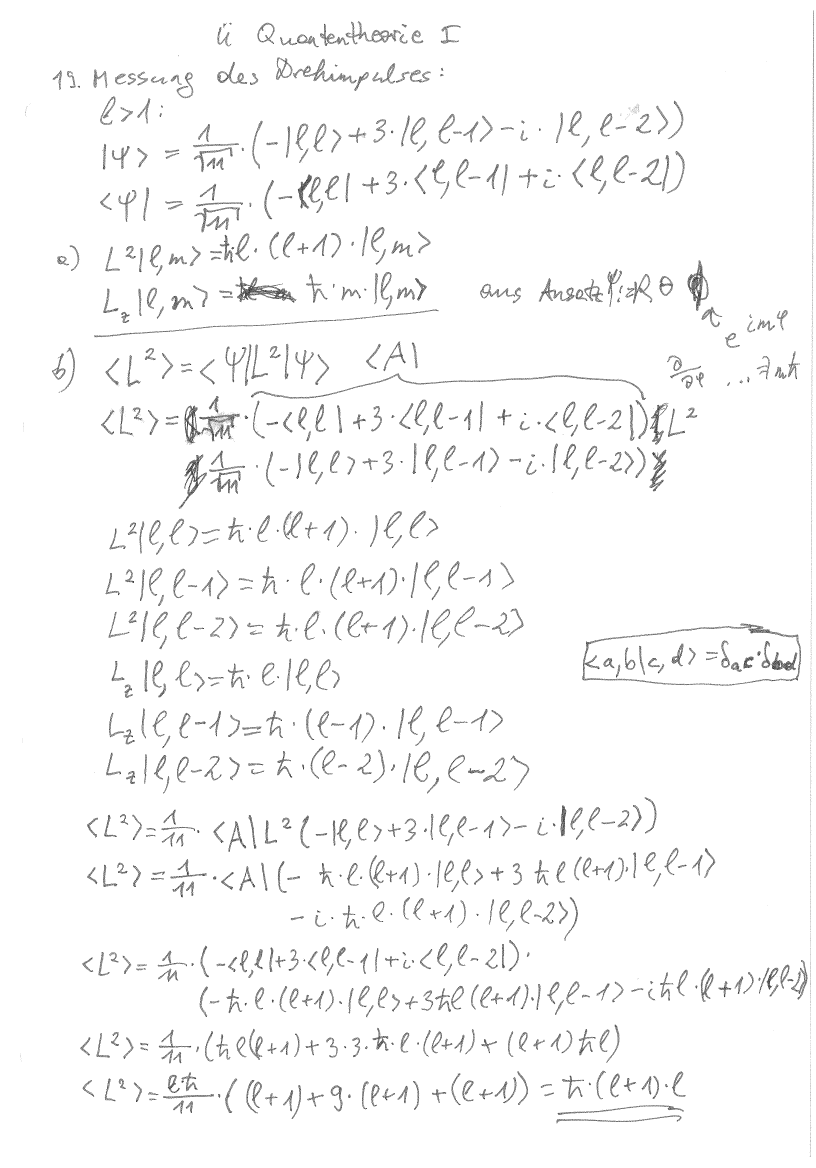 Ü Quantentheorie I
19. Messung des Drehimpulses:
l>1:
|ψ> = 1/√11 · (-|l,l> + 3·|l,l-1> - i·|l,l-2>)
<ψ| = 1/√11 · (-<l,l| + 3·<l,l-1| + i·<l,l-2|)
a) L²|l,m> = ħl·(l+1)·|l,m>
L_z|l,m> = ħ·m·|l,m> aus Ansatz
e^{imφ}
b) <L²> = <ψ|L²|ψ> <A|
∂/∂φ ...
<L²> = 1/√11 · (-<l,l| + 3·<l,l-1| + i·<l,l-2|) L²
1/√11 · (-|l,l> + 3·|l,l-1> - i·|l,l-2>)
L²|l,l> = ħ·l·(l+1)·|l,l>
L²|l,l-1> = ħ·l·(l+1)·|l,l-1>
L²|l,l-2> = ħ·l·(l+1)·|l,l-2>
<a,b|c,d> = δ_ac·δ_bd
L_z|l,l> = ħ·l·|l,l>
L_z|l,l-1> = ħ·(l-1)·|l,l-1>
L_z|l,l-2> = ħ·(l-2)·|l,l-2>
<L²> = 1/11 · <A|L²(-|l,l> + 3·|l,l-1> - i·|l,l-2>)
<L²> = 1/11 · <A|(- ħ·l·(l+1)·|l,l> + 3ħl(l+1)·|l,l-1>
- i·ħ·l·(l+1)·|l,l-2>)
<L²> = 1/11 · (-<l,l| + 3·<l,l-1| + i·<l,l-2|)·
(-ħ·l·(l+1)·|l,l> + 3ħl(l+1)·|l,l-1> - iħl·(l+1)·|l,l-2>)
<L²> = 1/11 · (ħl(l+1) + 3·3·ħ·l·(l+1) + (l+1)ħl)
<L²> = lħ/11 · ((l+1) + 9·(l+1) + (l+1)) = ħ·(l+1)·l